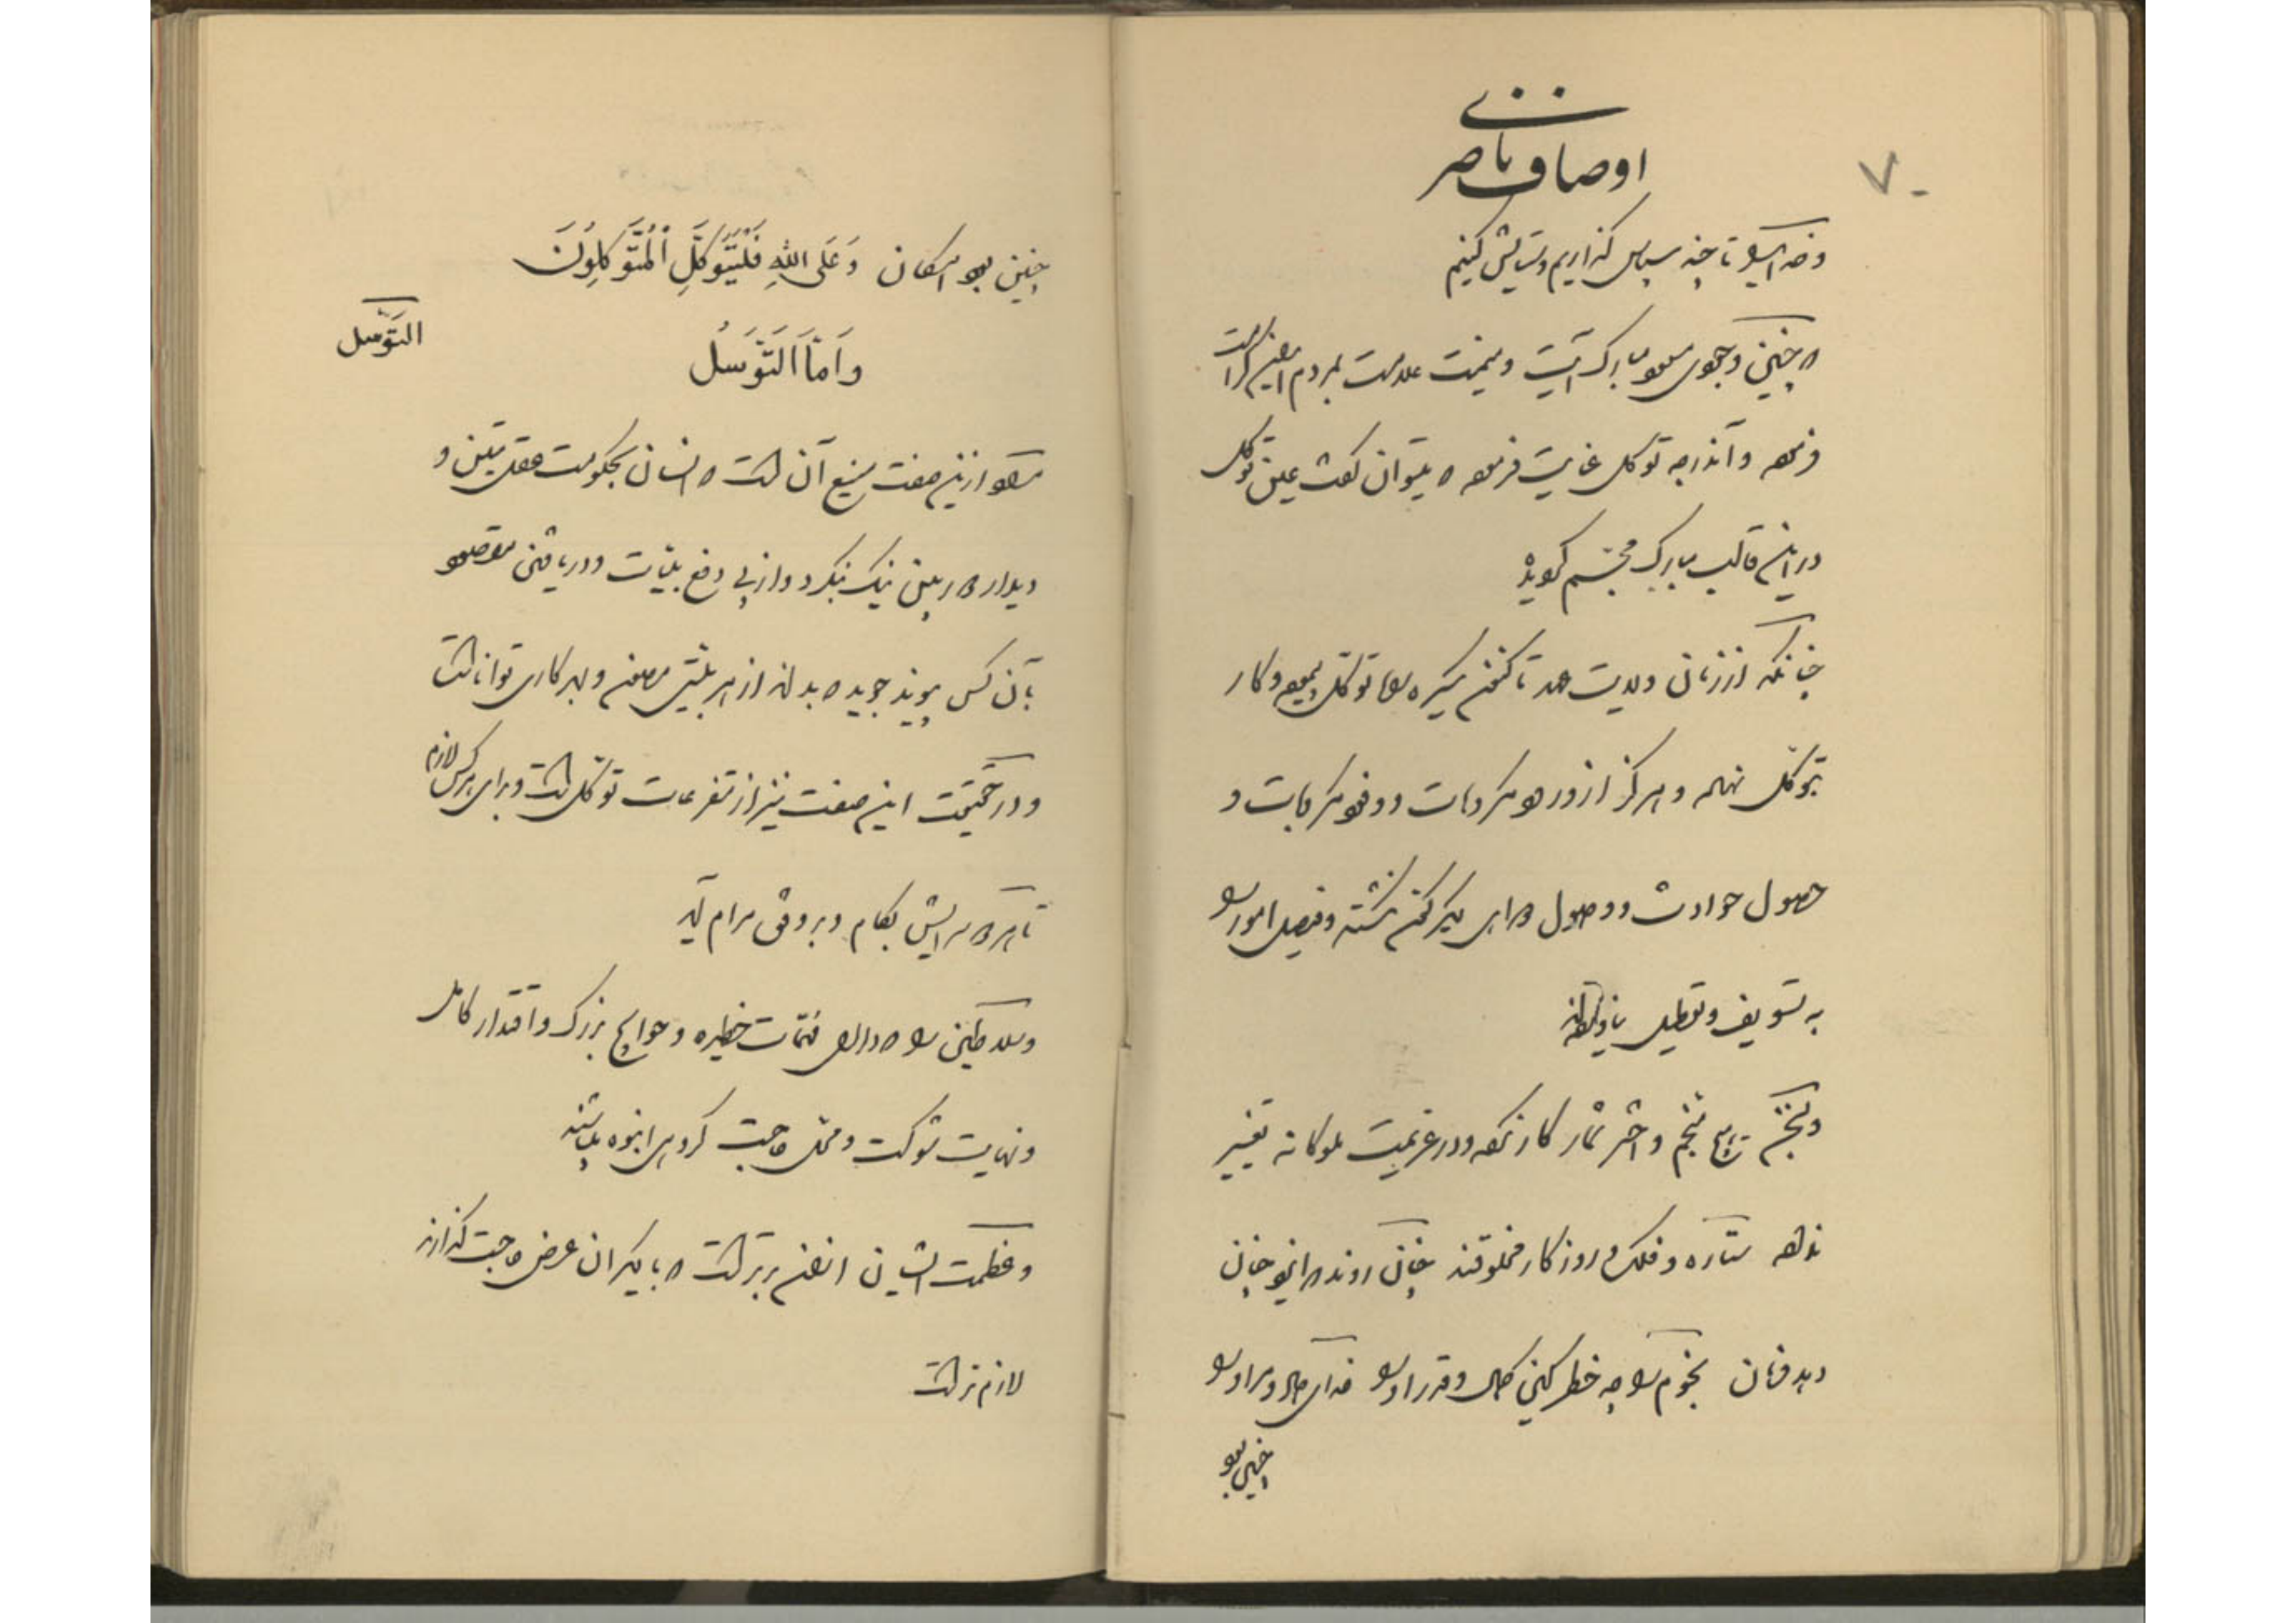 ۷۰
اوصاف ناصری
و خدای را تا چند سپاس گذاریم و ستایش کنیم
که چنین وجودی مسعود مبارک آیت و میمنت علامت بمردم این کرامت
فرموده و آندرجه توکل عنایت فرموده که میتوان گفت عین توکل
در این قالب مبارک مجسم گردیده
چنانکه از زمان ولایت عهد تاکنون سیره را توکل پیموده و کار
بتوکل نهاده و هرگز از ورود واردات و وفود کربات و
حصول حوادث و وصول دواهی دیگرگون نگشته و فیصل امور را
به تسویف و تعطیل نیفکنده
و تنجیم هیچ منجم و اختر شمار کار نکرده و در عزیمت ملوکانه تغییر
نداده ستاره و فلک و روزگار مخلوقند چنان روند که ایزد چنان
دهد فرمان نجوم را چه خطر کین کمال و قدر او را خدای حال و مراد را
چنین بود
چنین بود امکان وَعَلَی اللهِ فَلْیَتَوَکَّلِ الْمُتَوَکِّلُونَ
التَّوَسل
وَاَمَّا اَلتَّوَسُّلُ
مراد از این صفت منیع آن است که انسان بحکومت عقل متین و
دیدار کار بین نیک بنگرد و از پی دفع بلیات و دریافتن مقصود
بآن کس پیوند جوید که بداند از هر بلیتی مصون و بهر کاری توانا است
و در حقیقت این صفت نیز از متفرعات توکل است و برای هر کس لازم
تا هر کارایش بکام و بر وفق مرام آید
و سلاطین را که دارای مهمات خطیره و حوایج بزرگ و اقتدار کامل
و نهایت شوکت و محل حاجت گروهی انبوه میباشند
و عظمت ایشان افزون برتر است که با دیگران عرض حاجت گذارند
لازم‌تر است